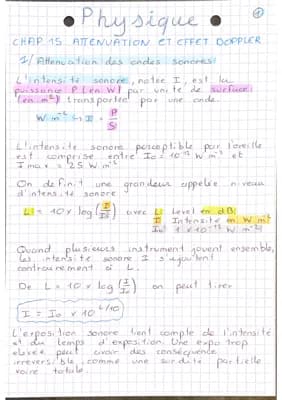 Physique
1
CHAP 15 ATTENUATION ET EFFET DOPPLER
1/ Attenuation des ondes sonores:
L'intensité sonore, notée I, est la
puissance P (en W) par unité de surface S
(en m²) transportée par une onde.
W m⁻² ← I = P/S
L'intensité sonore perceptible par l'oreille
est comprise entre I₀ = 10⁻¹² W m⁻² et
I max = 25 W m⁻²
On définit une grandeur appelée niveau
d'intensité sonore
L = 10 x log (I/I₀) avec L: Level en dB
I: Intensité en W m⁻²
I₀: 1 x 10⁻¹² W m⁻²
Quand plusieurs instrument jouent ensemble,
les intensité sonore I s'ajoutent
contrairement à L.
De L = 10 x log (I/I₀) on peut tirer
I = I₀ x 10^L/10
L'exposition sonore tient compte de l'intensité
et du temps d'exposition. Une expo trop
élevée peut avoir des conséquence
irréversible, comme une surdité partielle
voire totale.